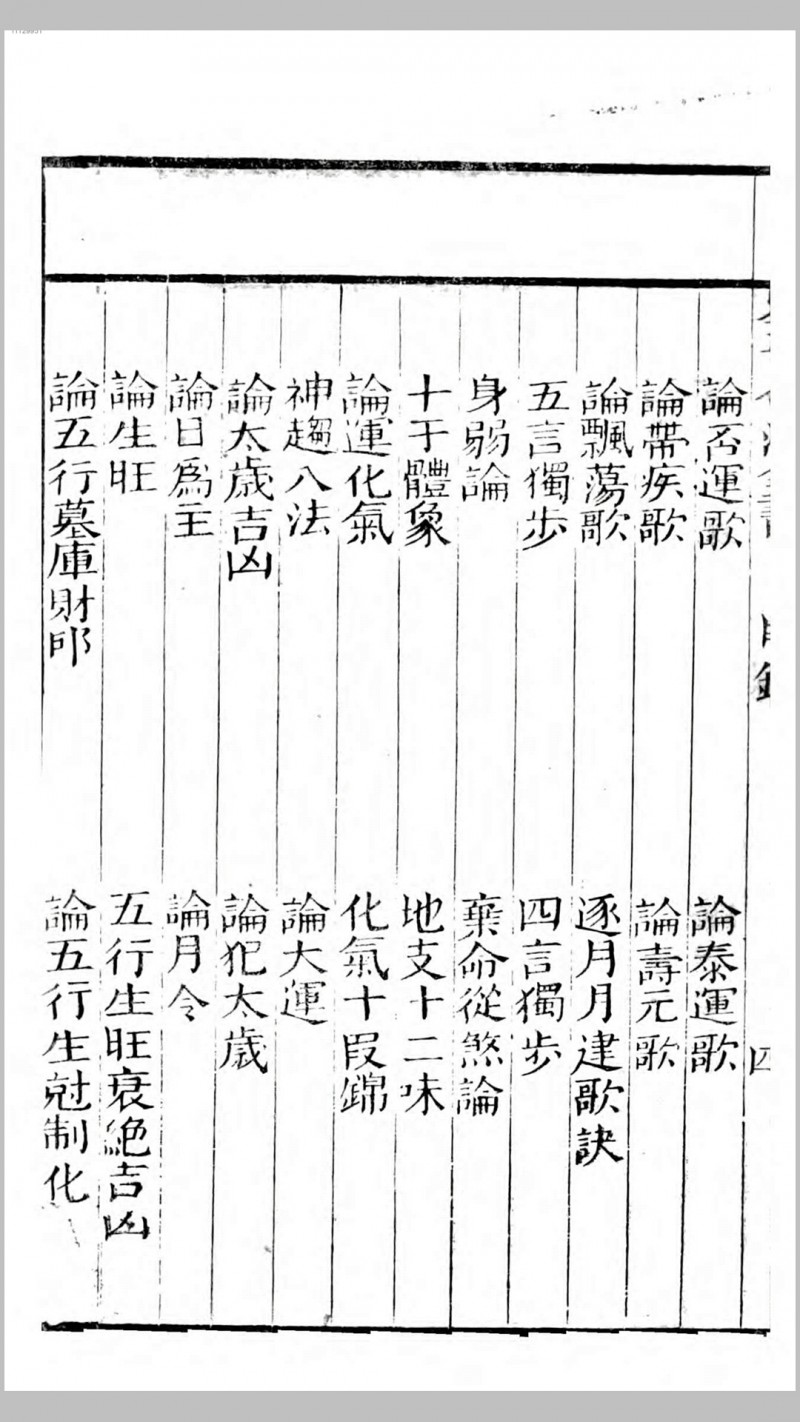 論否運歌
論泰運歌
論帶疾歌
論壽元歌
論飄蕩歌
逐月月建歌訣
五言獨步
四言獨步
身弱論
棄命從煞論
十干體象
地支十二味
論運化氣
化氣十段錦
神趨八法
論大運
論太歲吉凶
論犯太歲
論日為主
論月令
論生旺
五行生旺衰絕吉凶
論五行墓庫財印
論五行生尅制化
四